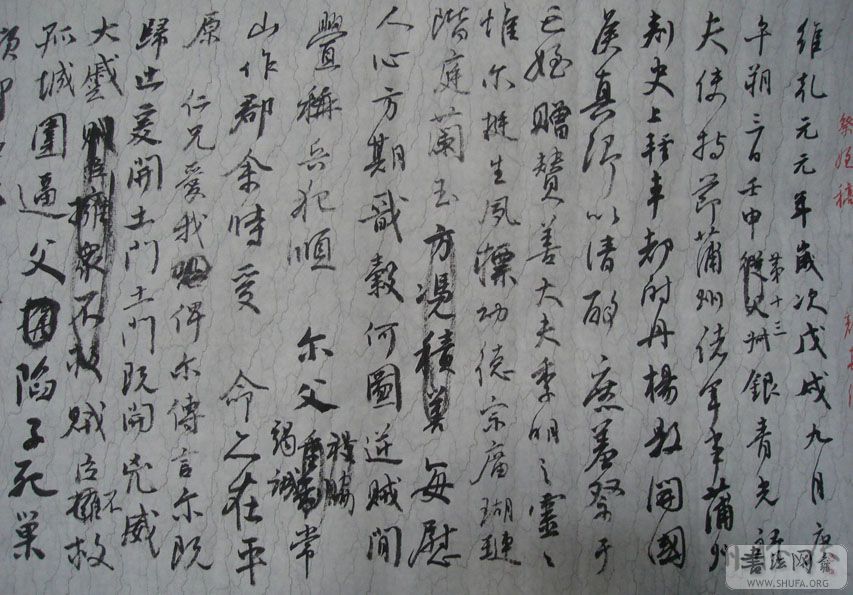 祭姪稿
維乾元元年歲次戊戌九月庚
午朔三日壬申第十三從父叔銀青光祿
夫使持節蒲州諸軍事蒲州
刺史上輕車都尉丹楊縣開國
侯真卿以清酌庶羞祭于
亡姪贈贊善大夫季明之靈
惟爾挺生夙標幼德宗廟瑚璉
階庭蘭玉方憑積善每慰
人心方期戩穀何圖逆賊閒
釁稱兵犯順爾父竭誠常
山作郡余時受命亦在平
原仁兄愛我俾爾傳言爾既
歸止爰開土門土門既開兇威
大蹙賊臣擁眾不救賊臣不擁救
孤城圍逼父陷子死巢
傾卵
書法网
WWW.SHUFA.ORG